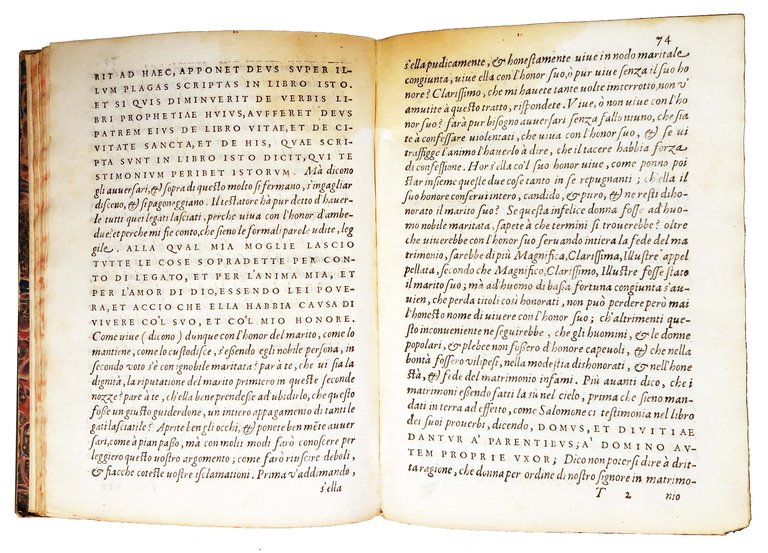 RIT AD HAEC, APPONET DEVS SVPER IL-
LVM PLAGAS SCRIPTAS IN LIBRO ISTO.
ET SI QVIS DIMINVERIT DE VERBIS LI
BRI PROPHETIAE HVIVS, AVFFERET DEVS
PATREM EIVS DE LIBRO VITAE, ET DE CI
VITATE SANCTA, ET DE HIS, QVAE SCRI
PTA SVNT IN LIBRO ISTO DICIT, QVI TE
STIMONIVM PERIBET ISTORVM. Mà dicono
gli auuersari, & sopra di questo molto si fermano, s'ingagliar
discono, & si pagoneggiano. Il testatore hà pur detto d'hauer-
le tutti quei legati lasciati, perche uiua con l'honor d'ambe-
due: et perche mi fie conto, che sieno le formali parole udite, leg
gile. ALLA QVAL MIA MOGLIE LASCIO
TVTTE LE COSE SOPRADETTE PER CON-
TO DI LEGATO, ET PER L'ANIMA MIA, ET
PER L'AMOR DI DIO, ESSENDO LEI POVE-
RA, ET ACCIO CHE ELLA HABBIA CAVSA DI
VIVERE CO'L SVO, ET CO'L MIO HONORE.
Come uiue (dicono) dunque con l'honor del marito, come lo
mantiene, come lo custodisce, s'essendo egli nobile persona, in
secondo uoto s'è con ignobile maritata? par à te, che ui sia la
dignità, la riputatione del marito primiero in queste seconde
nozze? par è à te, ch'ella bene prendesse ad ubidirlo, che questo
fosse un giusto guiderdone, un intiero appagamento di tanti le
gati lasciatile? Aprite ben gli occhi, & ponete ben mēte auuer
sari, come à pian passo, mà con molti modi farò conoscere per
leggiero questo uostro argomento; come farò riuscire deboli,
& fiacche coteste uostre isclamationi. Prima v'addimando,
s'ella
74
s'ella pudicamente, & honestamente uiue in nodo maritale
congiunta, uiue ella con l'honor suo, ò pur uiue senza il suo ho
nore? Clarissimo, che mi hauete tante uolte interrotto, non v'
amutite à questo tratto, rispondete. Viue, ò non uiue con l'ho
nor suo? farà pur bisogno auuersari senza fallo niuno, che sia
te à confessare violentati, che uiua con l'honor suo, & se ui
trafigge l'animo l'hauerlo à dire, che il tacere habbia forza
di confessione. Hor s'ella co'l suo honor uiue, come ponno poi
star insieme queste due cose tanto in se repugnanti; ch'ella il
suo honore conserui intero, candido, & puro, & ne resti diho
norato il marito suo? Se questa infelice donna fosse ad huo-
mo nobile maritata, sapete à che termini si trouerebbe? oltre
che uiuerebbe con l'honor suo seruando intiera la fede del ma
trimonio, sarebbe di più Magnifica, Clarissima, Illustre ap-
pellata, secondo che Magnifico, Clarissimo, Illustre fosse stato
il marito suo; mà ad huomo di bassa fortuna congiunta s'au-
uien, che perda titoli così honorati, non può perdere però mai
l'honesto nome di uiuere con l'honor suo; ch'altrimenti que-
sto inconueniente ne seguirebbe, che gli huomini, & le donne
popolari, & plebee non fossero d'honore capeuoli, & che nella
bontà fossero vilipesi, nella modestia dishonorati, & nell'hone
stà, & fede del matrimonio infami. Più auanti dico, che i
matrimoni essendo fatti là sù nel cielo, prima che sieno man-
dati in terra ad effetto, come Salomone ci testimonia nel libro
dei suoi prouerbi, dicendo, DOMVS, ET DIVITIAE
DANTVR A' PARENTIBVS; A' DOMINO AV-
TEM PROPRIE VXOR; Dico non potersi dire à drit-
ta ragione, che donna per ordine di nostro signore in matrimo-
T 2 nio